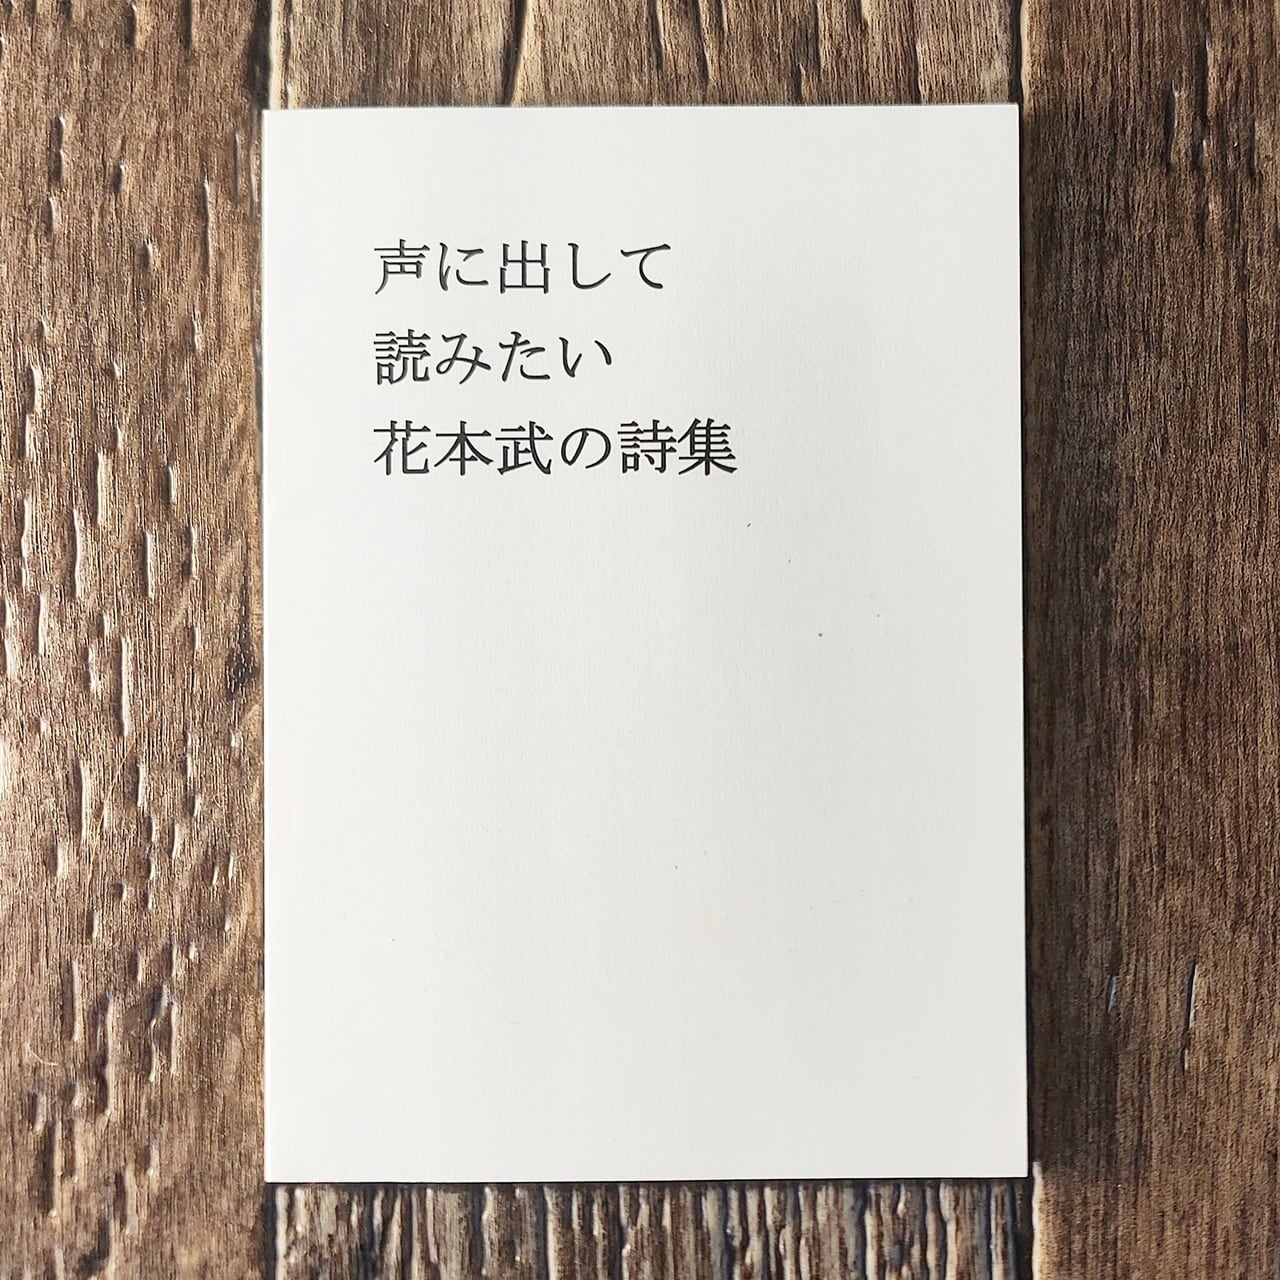 声に出して
読みたい
花本武の詩集